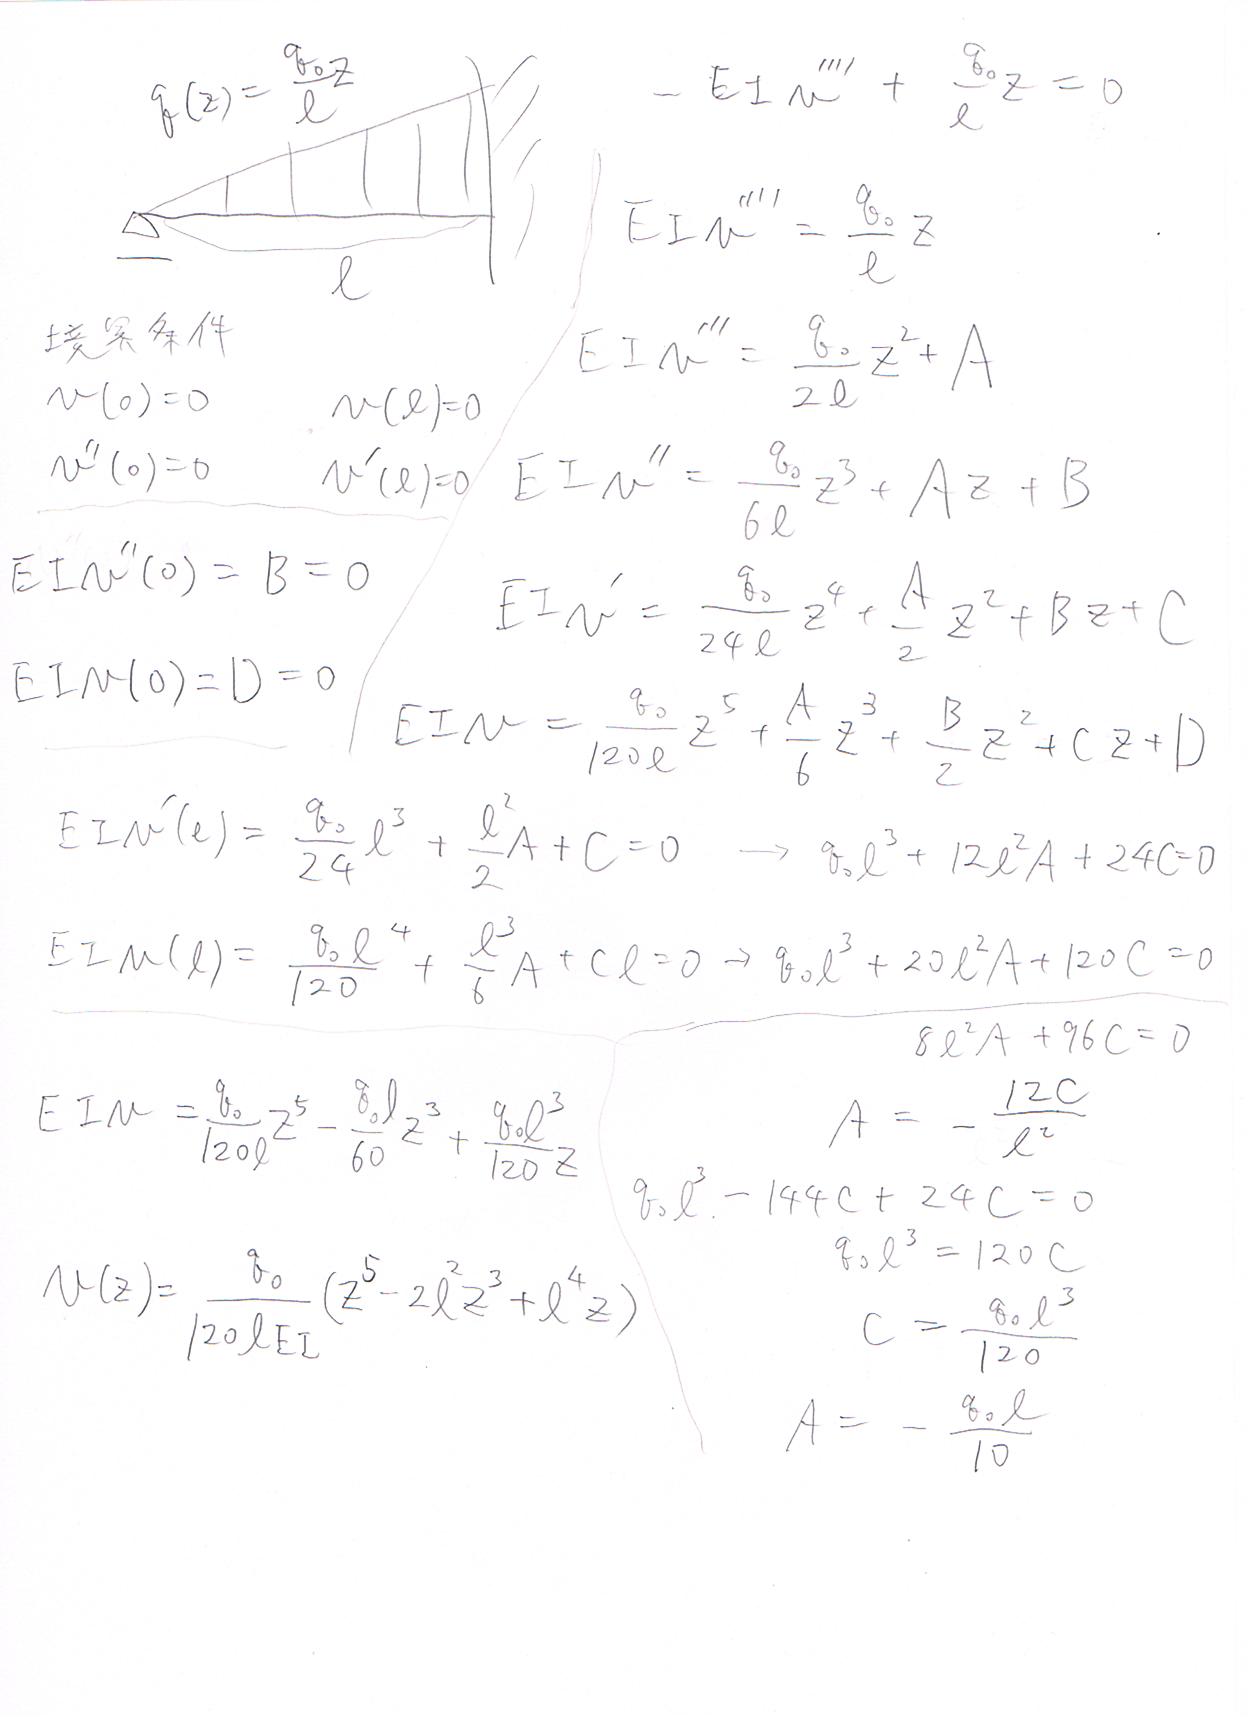 q(z) = q₀/l z
l
境界条件
v(0)=0 v(l)=0
v''(0)=0 v'(l)=0
EIv''(0) = B = 0
EIv(0) = D = 0
- EIv'''' + q₀/l z = 0
EIv'''' = q₀/l z
EIv''' = q₀/2l z² + A
EIv'' = q₀/6l z³ + Az + B
EIv' = q₀/24l z⁴ + A/2 z² + Bz + C
EIv = q₀/120l z⁵ + A/6 z³ + B/2 z² + Cz + D
EIv'(l) = q₀/24 l³ + l²/2 A + C = 0 → q₀l³ + 12l²A + 24C = 0
EIv(l) = q₀l⁴/120 + l³/6 A + Cl = 0 → q₀l³ + 20l²A + 120C = 0
8l²A + 96C = 0
A = - 12C/l²
q₀l³ - 144C + 24C = 0
q₀l³ = 120C
C = q₀l³/120
A = - q₀l/10
EIv = q₀/120l z⁵ - q₀l/60 z³ + q₀l³/120 z
v(z) = q₀/120lEI (z⁵ - 2l²z³ + l⁴z)